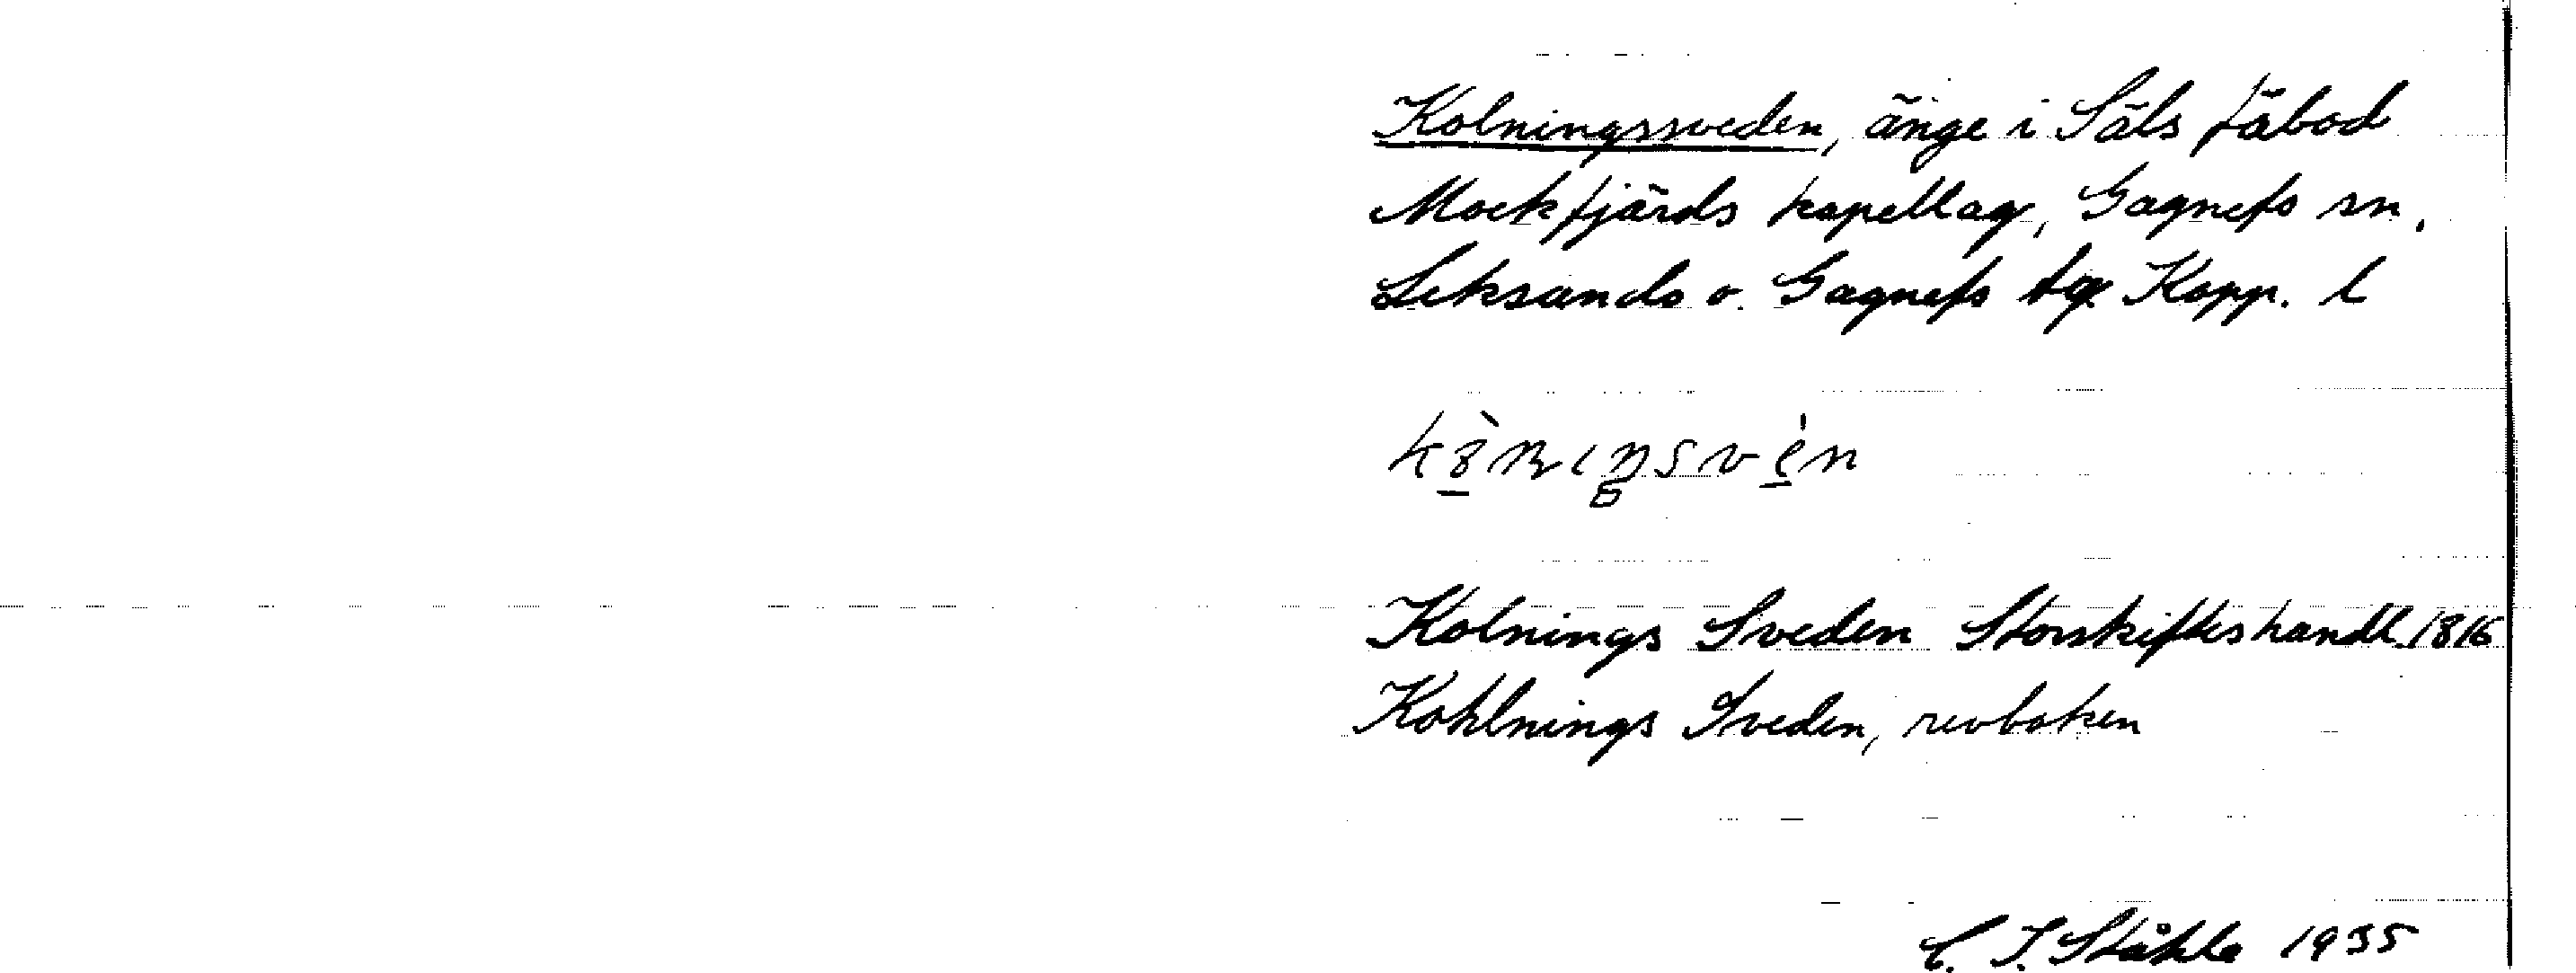 Kolningssveden, änge i Säls fäbod
Mockfjärds kapellag, Gagnefs sn,
Leksands o. Gagnefs tg. Kopp. l
Kolnings Sveden Storskifteshandl. 1816
Kohlnings Sveden, revboken
C. I. Ståhle 1935